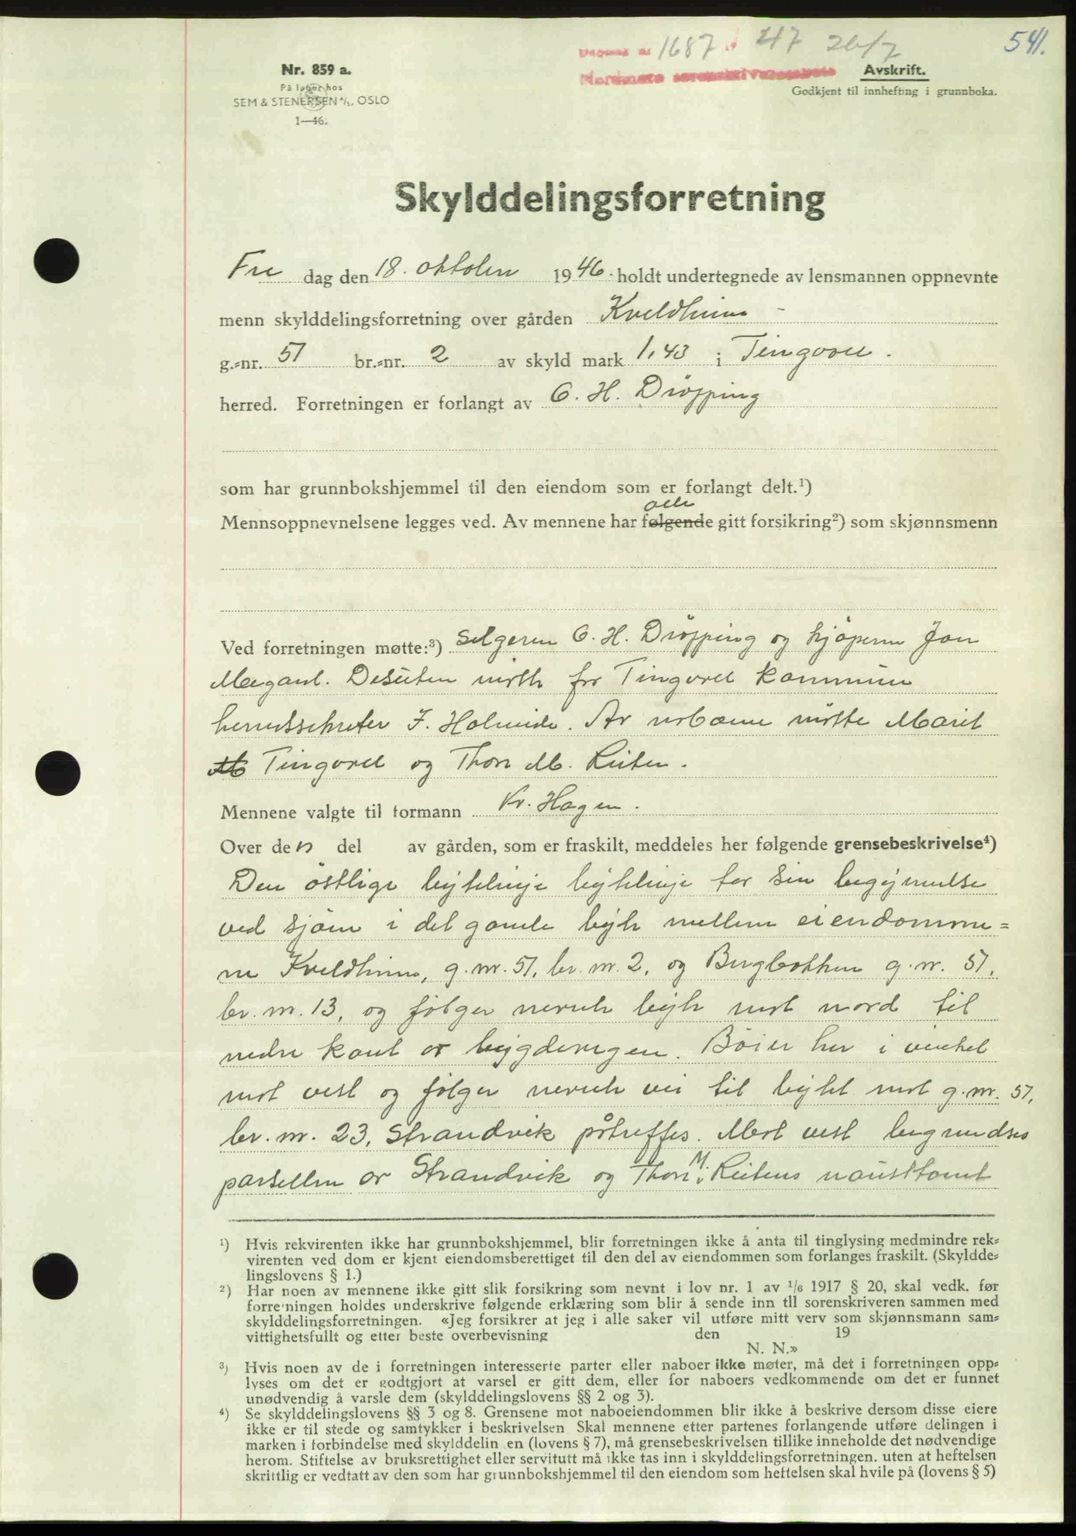 541.
Dagbok nr. 1687 47 26/7
Nordmøre sorenskriverembete
Nr. 859 a.
På lager hos
SEM & STENERSEN A/S, OSLO
1—46.
Avskrift.
Godkjent til innhefting i grunnboka.
Skylddelingsforretning
Fre dag den 18. oktober 1946. holdt undertegnede av lensmannen oppnevnte
menn skylddelingsforretning over gården Kveldheim -
g.-nr. 51 br.-nr. 2 av skyld mark 1,43 i Tingvoll.
herred. Forretningen er forlangt av O. H. Drøpping
som har grunnbokshjemmel til den eiendom som er forlangt delt.¹)
alle
Mennsoppnevnelsene legges ved. Av mennene har følgende gitt forsikring²) som skjønnsmenn
Ved forretningen møtte:³) Selgeren O. H. Dröpping og kjöperen Jon
Megard. Desuten mötte for Tingvoll kommune
herredssekretær J. Holmeide. Av naboene mötte Marit
Tingvoll og Thore M. Reiten.
Mennene valgte til formann Kr. Hagen.
Over den del av gården, som er fraskilt, meddeles her følgende grensebeskrivelse⁴)
Den östlige bytelinje bytelinje tar sin begynnelse
ved sjöen i det gamle byte mellem eiendomme=
ne Kveldheim, g. nr. 51, br. nr. 2, og Bergbakken g. nr. 51,
br. nr. 13, og fölger nevnte byte mot nord til
nedre kant av bygdevegen. Böier her i vinkel
mot vest og fölger nevnte vei til bytet mot g. nr. 51,
br. nr. 23, Strandvik påtreffes. Mot vest begrendses
parsellen av Strandvik og Thore M. Reitens nausttomt
¹) Hvis rekvirenten ikke har grunnbokshjemmel, blir forretningen ikke å anta til tinglysing medmindre rek-
virenten ved dom er kjent eiendomsberettiget til den del av eiendommen som forlanges fraskilt. (Skyldde-
lingslovens § 1.)
²) Har noen av mennene ikke gitt slik forsikring som nevnt i lov nr. 1 av 1/6 1917 § 20, skal vedk. før
forretningen holdes underskrive følgende erklæring som blir å sende inn til sorenskriveren sammen med
skylddelingsforretningen. «Jeg forsikrer at jeg i alle saker vil utføre mitt verv som skjønnsmann sam-
vittighetsfullt og etter beste overbevisning den 19
N. N.»
³) Hvis noen av de i forretningen interesserte parter eller naboer ikke møter, må det i forretningen opp-
lyses om det er godtgjort at varsel er gitt dem, eller for naboers vedkommende om det er funnet
unødvendig å varsle dem (skylddelingslovens §§ 2 og 3).
⁴) Se skylddelingslovens §§ 3 og 8. Grensene mot naboeiendommen blir ikke å beskrive dersom disse eiere
ikke er til stede og samtykker i beskrivelsen Skal mennene etter partenes forlangende utføre delingen i
marken i forbindelse med skylddelingen (lovens § 7), må grensebeskrivelsen tillike inneholde det nødvendige
herom. Stiftelse av bruksrettighet eller servitutt må ikke tas inn i skylddelingsforretningen. uten at heftelsen
skriftlig er vedtatt av den som har grunnbokshjemmel til den eiendom som heftelsen skal hvile på (lovens § 5)